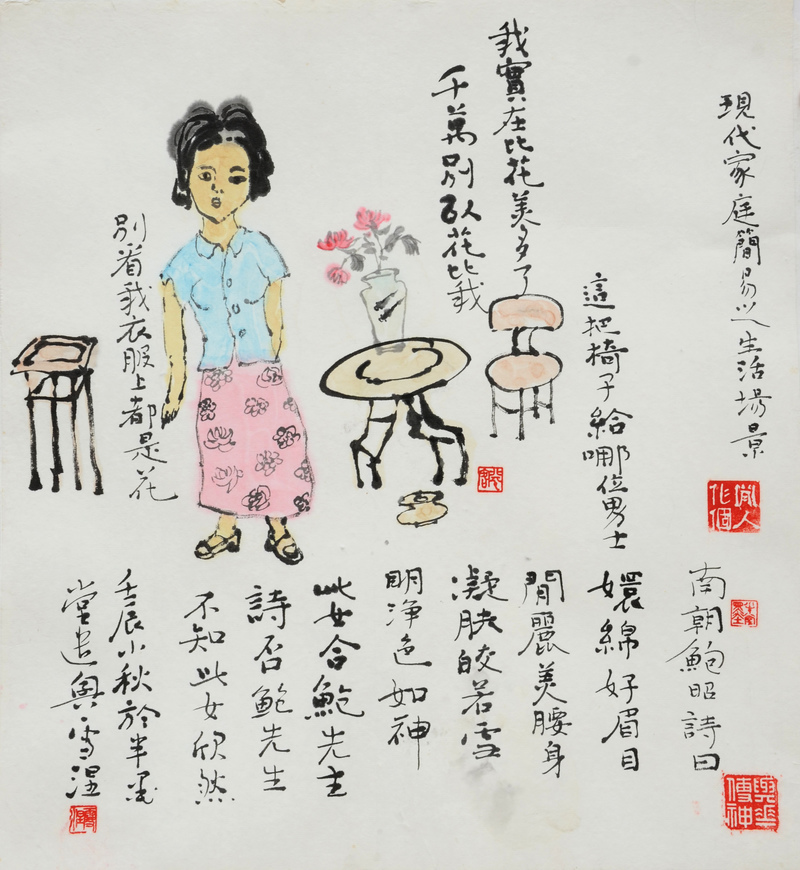 現代家庭簡易之生活場景
我實在比花美多了
千萬別以花比我
這把椅子給哪位男士
別看我衣服上都是花
南朝鮑昭詩曰
嬛綿好眉目
閒麗美腰身
凝肤皎若雪
明净色如神
此女合鮑先生
詩否鮑先生
不知此女欣然
壬辰小秋於半墨
堂遣興雪涅